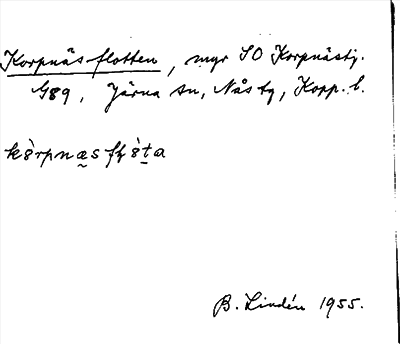 Korpnäsflotten, myr SO Korpnästj.
G89, Järna sn, Nås tg, Kopp. l.
kòrpnæsfḷòta
B. Lindén 1955.